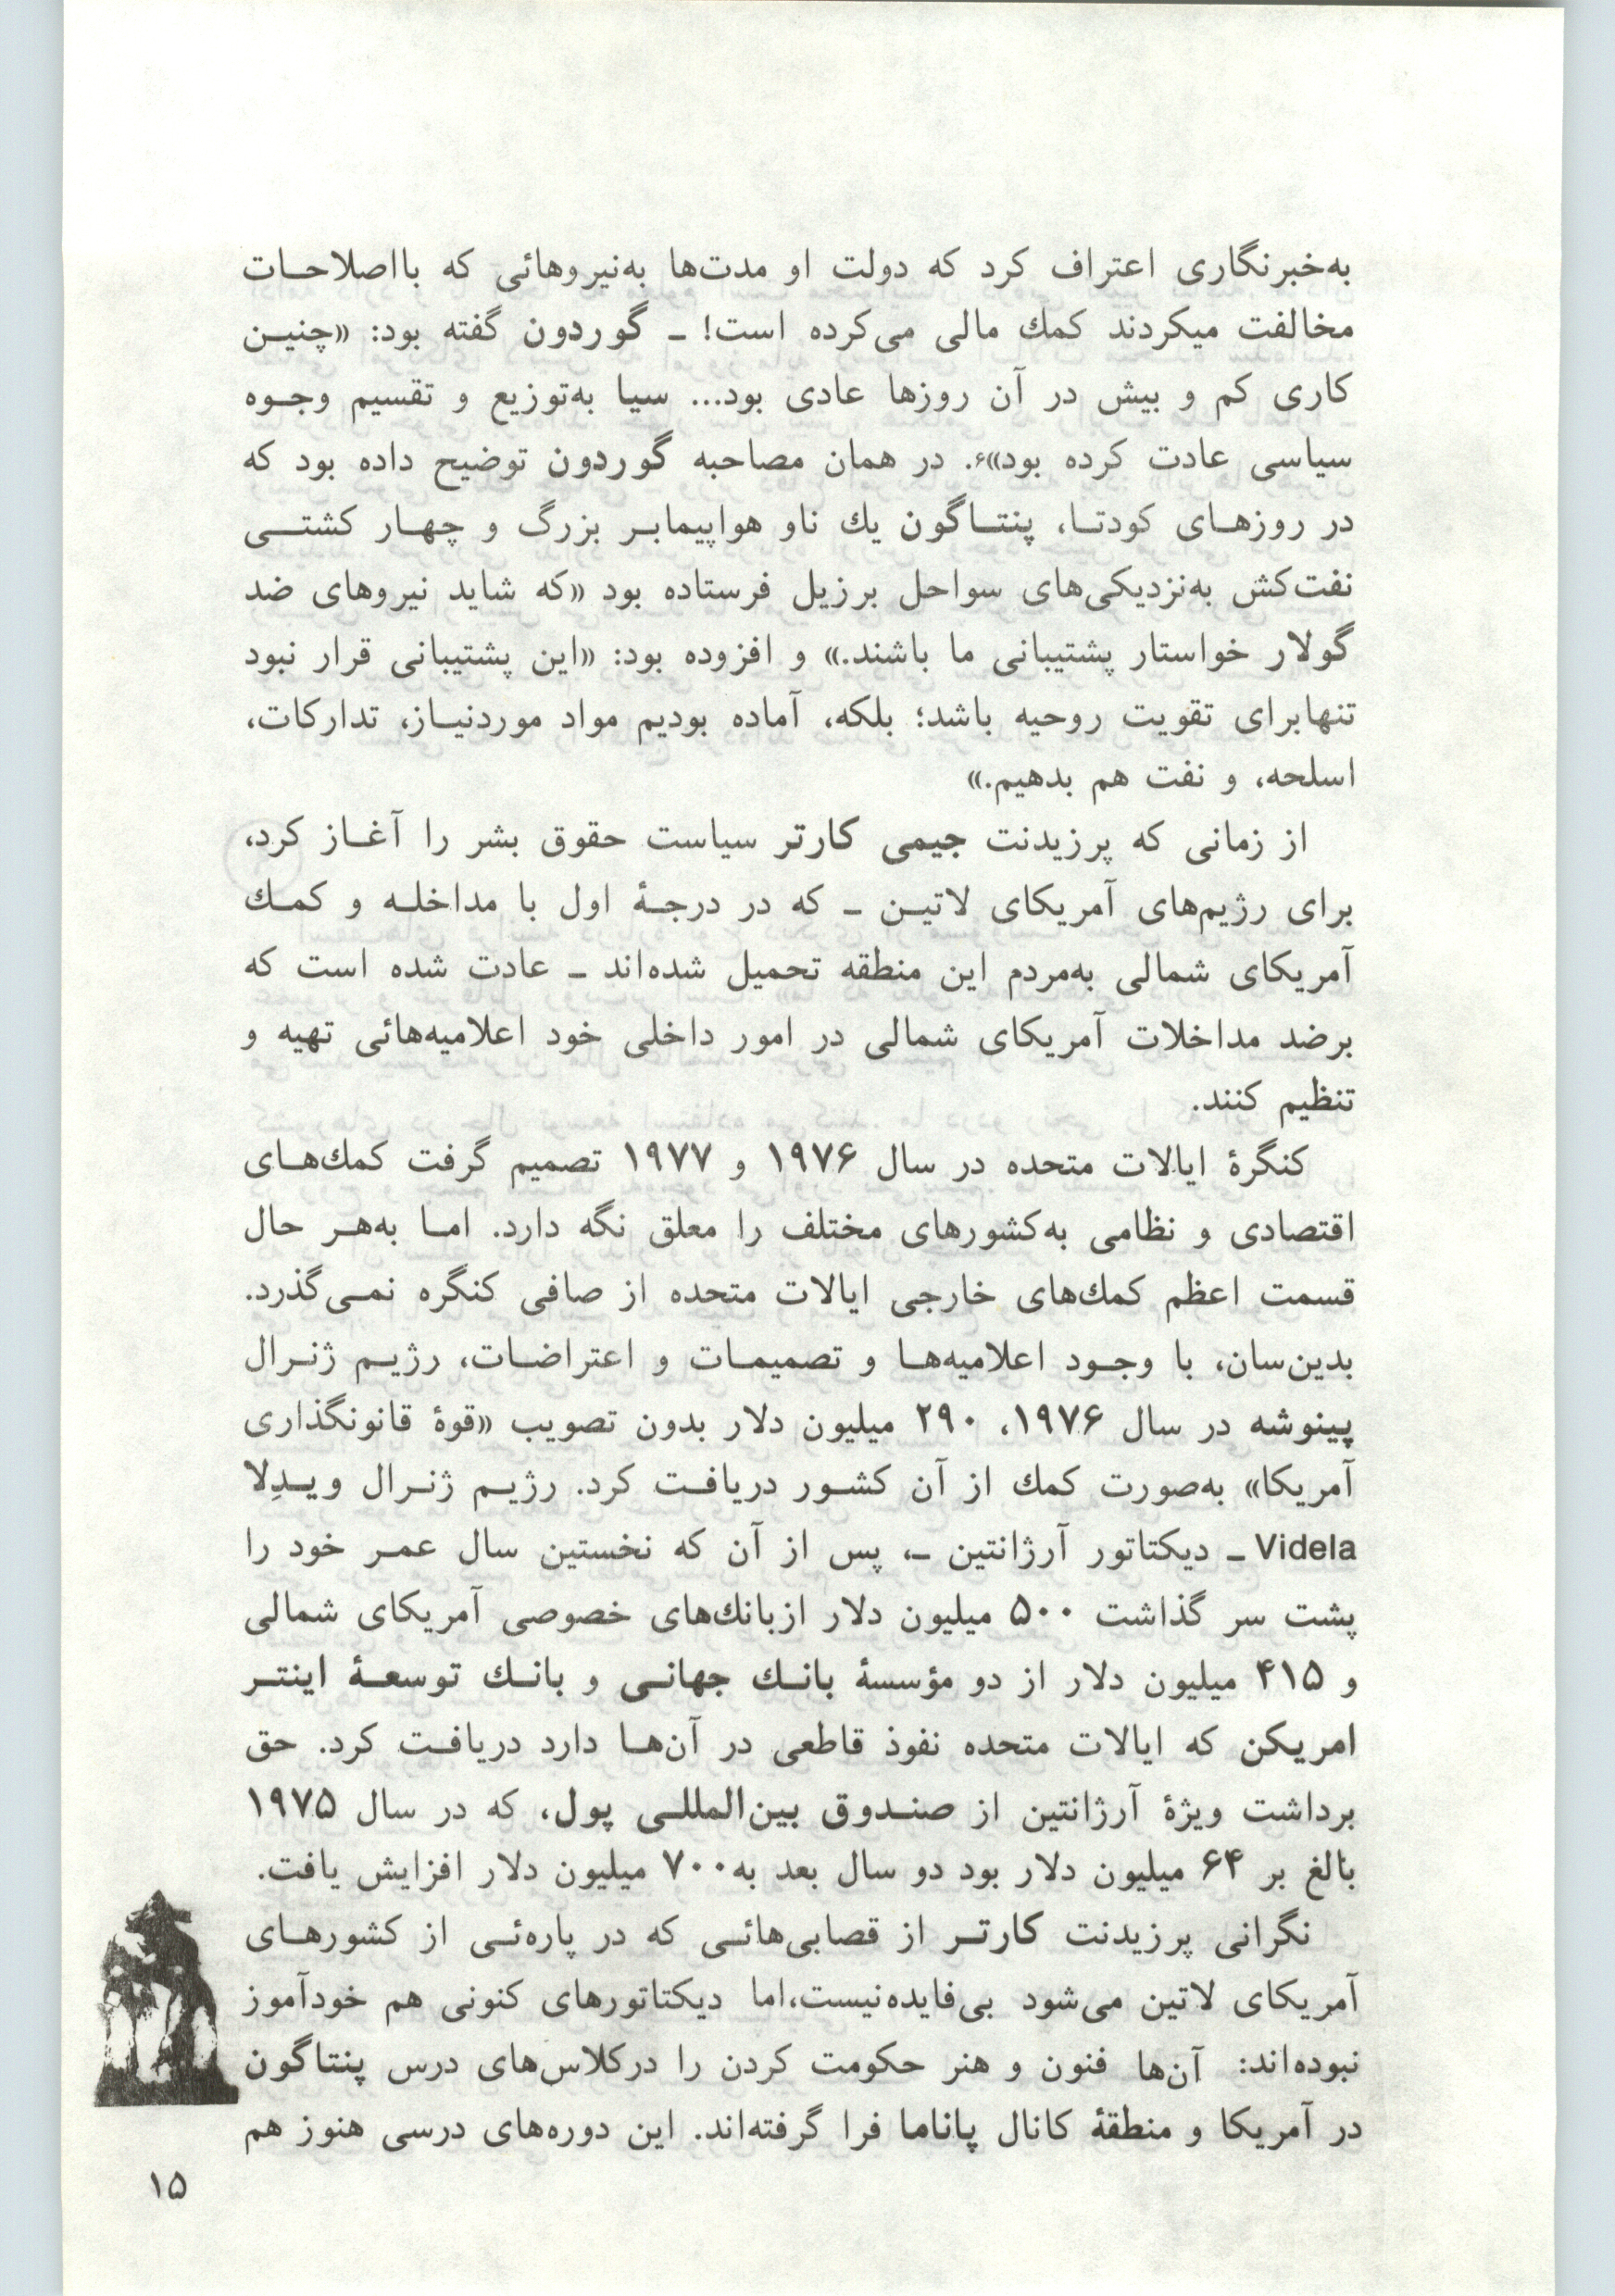 به‌خبرنگاری اعتراف کرد که دولت او مدت‌ها به‌نیروهائی که بااصلاحات
مخالفت میکردند کمك مالی می‌کرده است! ـ گوردون گفته بود: «چنین
کاری کم و بیش در آن روزها عادی بود... سیا به‌توزیع و تقسیم وجوه
سیاسی عادت کرده بود»۶. در همان مصاحبه گوردون توضیح داده بود که
در روزهای کودتا، پنتاگون یك ناو هواپیمابر بزرگ و چهار کشتی
نفت‌کش به‌نزدیکی‌های سواحل برزیل فرستاده بود «که شاید نیروهای ضد
گولار خواستار پشتیبانی ما باشند.» و افزوده بود: «این پشتیبانی قرار نبود
تنهابرای تقویت روحیه باشد؛ بلکه، آماده بودیم مواد موردنیاز، تدارکات،
اسلحه، و نفت هم بدهیم.»
از زمانی که پرزیدنت جیمی کارتر سیاست حقوق بشر را آغاز کرد،
برای رژیم‌های آمریکای لاتین ـ که در درجهٔ اول با مداخله و کمك
آمریکای شمالی به‌مردم این منطقه تحمیل شده‌اند ـ عادت شده است که
برضد مداخلات آمریکای شمالی در امور داخلی خود اعلامیه‌هائی تهیه و
تنظیم کنند.
کنگرهٔ ایالات متحده در سال ۱۹۷۶ و ۱۹۷۷ تصمیم گرفت کمك‌های
اقتصادی و نظامی به‌کشورهای مختلف را معلق نگه دارد. اما به‌هر حال
قسمت اعظم کمك‌های خارجی ایالات متحده از صافی کنگره نمی‌گذرد.
بدین‌سان، با وجود اعلامیه‌ها و تصمیمات و اعتراضات، رژیم ژنرال
پینوشه در سال ۱۹۷۶، ۲۹۰ میلیون دلار بدون تصویب «قوهٔ قانونگذاری
آمریکا» به‌صورت کمك از آن کشور دریافت کرد. رژیم ژنرال ویدِلا
Videla ـ دیکتاتور آرژانتین ـ، پس از آن که نخستین سال عمر خود را
پشت سر گذاشت ۵۰۰ میلیون دلار ازبانك‌های خصوصی آمریکای شمالی
و ۴۱۵ میلیون دلار از دو مؤسسهٔ بانك جهانی و بانك توسعهٔ اینتر
امریکن که ایالات متحده نفوذ قاطعی در آن‌ها دارد دریافت کرد. حق
برداشت ویژهٔ آرژانتین از صندوق بین‌المللی پول، که در سال ۱۹۷۵
بالغ بر ۶۴ میلیون دلار بود دو سال بعد به۷۰۰ میلیون دلار افزایش یافت.
نگرانی پرزیدنت کارتر از قصابی‌هائی که در پاره‌ئی از کشورهای
آمریکای لاتین می‌شود بی‌فایده‌نیست،اما دیکتاتورهای کنونی هم خودآموز
نبوده‌اند: آن‌ها فنون و هنر حکومت کردن را درکلاس‌های درس پنتاگون
در آمریکا و منطقهٔ کانال پاناما فرا گرفته‌اند. این دوره‌های درسی هنوز هم
۱۵